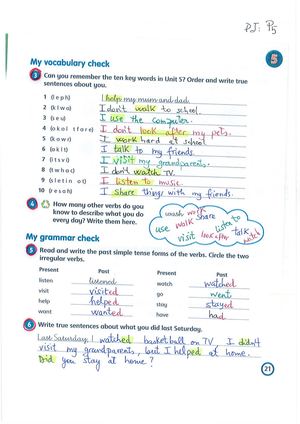 PJ: P5
5
My vocabulary check
3 Can you remember the ten key words in Unit 5? Order and write true
sentences about you.
1 (leph) I help my mum and dad.
2 (klwa) I don't walk to school.
3 (seu) I use the computer.
4 (okol tfare) I don't look after my pets.
5 (kowr) I work hard at school.
6 (aklt) I talk to my friends.
7 (itsv) I visit my grandparents.
8 (twhac) I don't watch TV.
9 (sletin ot) I listen to music.
10 (resah) I share things with my friends.
4 How many other verbs do you
know to describe what you do
every day? Write them here.
wash work
use walk share
visit look after listen to
talk watch
My grammar check
5 Read and write the past simple tense forms of the verbs. Circle the two
irregular verbs.
Present Past Present Past
listen listened watch watched
visit visited go went
help helped stay stayed
want wanted have had
6 Write true sentences about what you did last Saturday.
Last Saturday, I watched basketball on TV. I didn't
visit my grandparents, but I helped at home.
Did you stay at home?
21